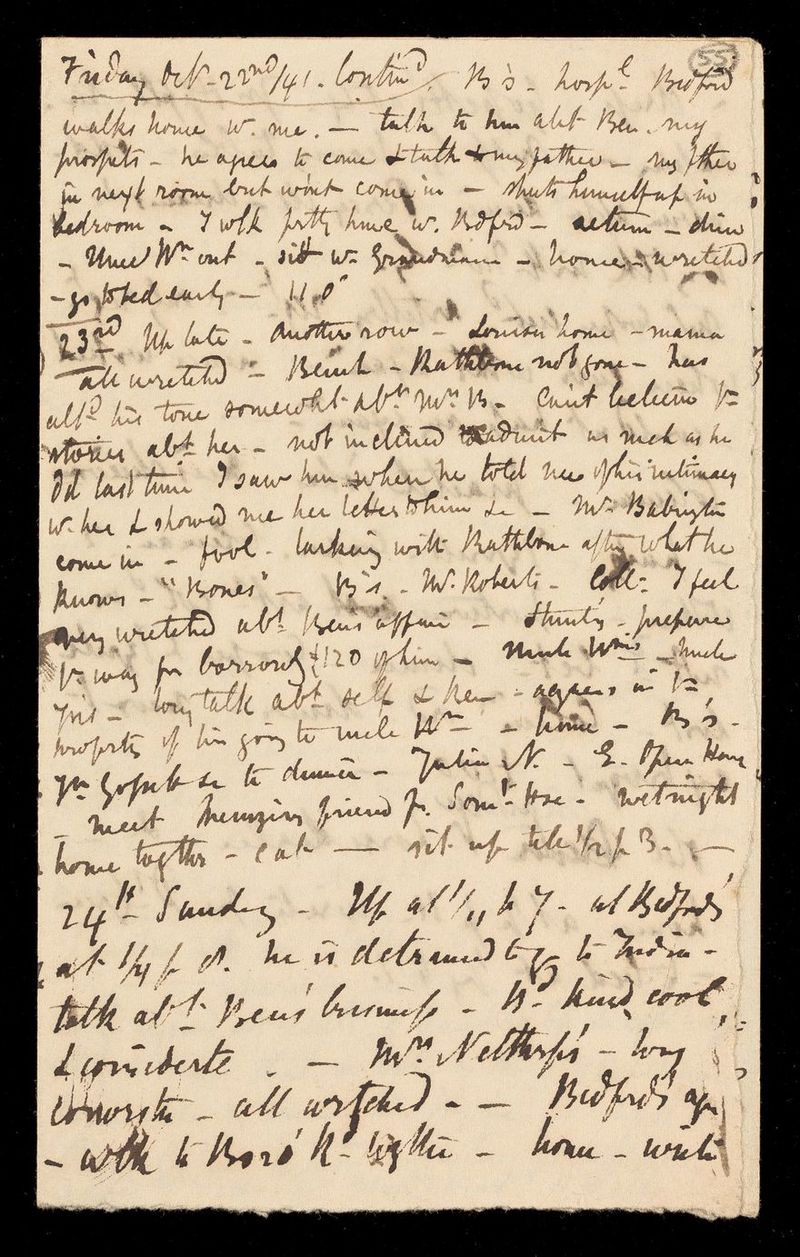 55
Friday Octr 22nd/41. Contin'd. B's - hospl - Bedford
walks home w. me. — talk to him abt Ben. my
prospts - he agrees to come & talk to my father - my fther
in next room but won't come in - shuts himself up in
bedroom - I wlk prtty home w. Bdfrd - return - dine
- Uncle Wm out - sitt w. Grandmama - home - wretched
- go to bed early — 11.0"
23rd Up late - Another row - Louisa home - mama
all wretched - Bench - Rathbone not gone - has
altd his tone somewht abt Mrs B - Can't believe ye
stories abt her - not inclined to admit as much as he
Dd last time I saw him when he told me of his intimacy
w. her & showed me her letters to him &c - Mr. Babington
come in - fool - larking with Rathbone after what he
knows - "Bones" — B's. - Mr. Roberts - Coll. I feel
very wretched abt Ben's affair - prepare
ye way for borrowg £120 of him - Uncle Wms - Uncle
long talk abt self & Ben - agrees in ye
propriety of his going to uncle Wm - home - B's -
Yn &c to dinner - Julia N. - E. Open House
- meet friend fr. Somt Hse - wet night
home togther - eat — sit up till 1/2 p 3. —
24th Sunday - Up at 1/4 to 7 - at Bedfrd's
at 1/4 p 8. he is detrmined to go to India -
talk abt Ben's business - Bd kind, cool
& considerte - — Mrs Nelthrp's - long
converstn - all wrtched - — Bedfrd's agn
- wlk to Boro' Rd togther - home - write